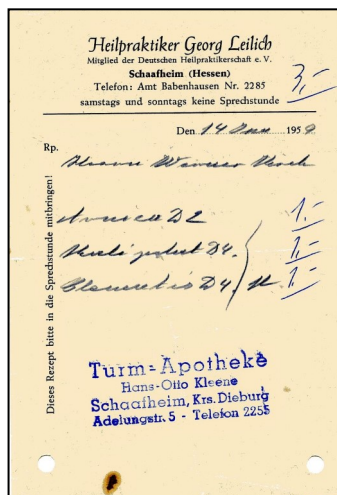 Heilpraktiker Georg Leilich
Mitglied der Deutschen Heilpraktikerschaft e. V.
Schaafheim (Hessen)
Telefon: Amt Babenhausen Nr. 2285
samstags und sonntags keine Sprechstunde
3,-
Den 14 1959
Rp.
Herrn Werner
Dieses Rezept bitte in die Sprechstunde mitbringen!
Arnica D2 1.-
D4. 1.-
D4 1.-
Turm-Apotheke
Hans-Otto Kleene
Schaafheim, Krs. Dieburg
Adelungstr. 5 - Telefon 2255